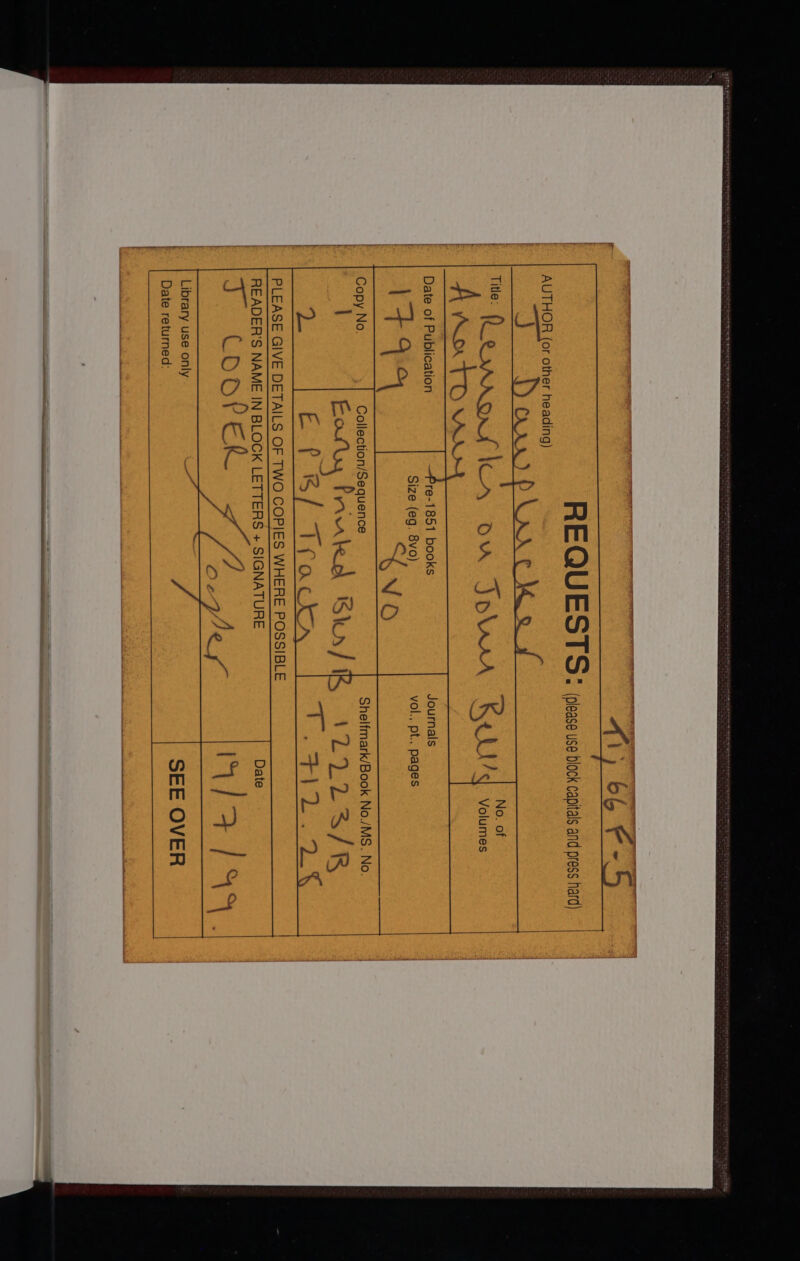 66 F-5
REQUESTS: (please use block capitals and press hard)
AUTHOR (or other heading)
J Dampluckes
Title: Remarks on John Bell's
Anatomy
No. of
Volumes
Date of Publication
1799
Pre-1851 books
Size (eg. 8vo)
8vo
Journals
vol., pt., pages
Copy No.
Collection/Sequence
Shelfmark/Book No./MS. No.
1 Early Printed Bks/B 12223/B
2 EPB/Tracts T.712.28
PLEASE GIVE DETAILS OF TWO COPIES WHERE POSSIBLE
READER'S NAME IN BLOCK LETTERS + SIGNATURE
J COOPER J Cooper
Date
19/7/99.
Library use only
Date returned:
SEE OVER